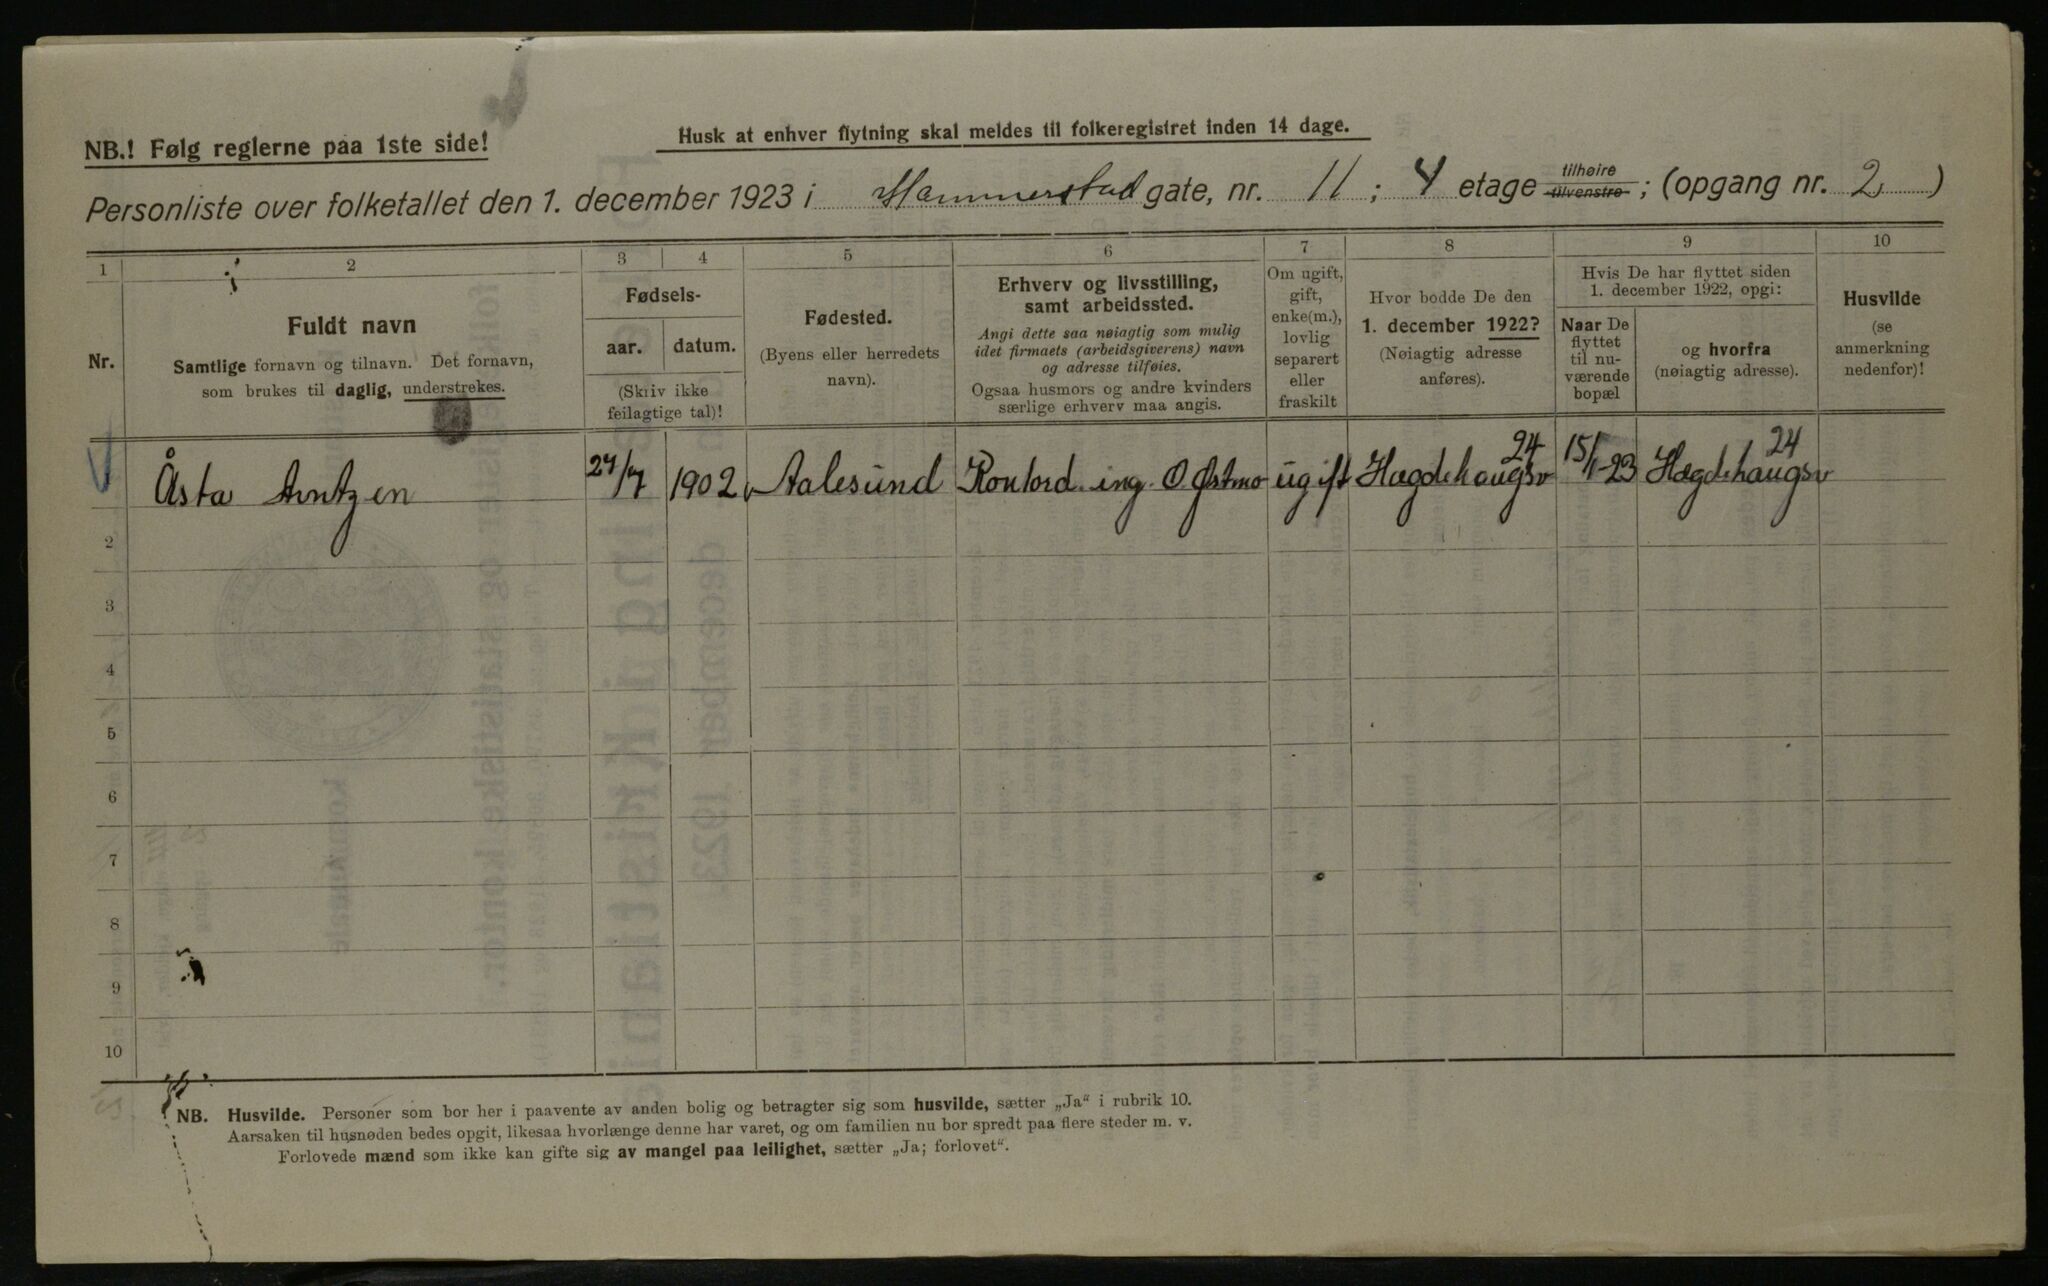 NB.! Følg reglerne paa 1ste side!
Husk at enhver flytning skal meldes til folkeregistret inden 14 dage.
Personliste over folketallet den 1. december 1923 i Hammerstad gate, nr. 11; 4 etage tilhøire tilvenstre; (opgang nr. 2)
1 2 3 4 5 6 7 8 9 10
Nr.
Fuldt navn
Samtlige fornavn og tilnavn. Det fornavn,
som brukes til daglig, understrekes.
Fødsels-
aar. datum.
(Skriv ikke
feilagtige tal)!
Fødested.
(Byens eller herredets
navn).
Erhverv og livsstilling,
samt arbeidssted.
Angi dette saa nøiagtig som mulig
idet firmaets (arbeidsgiverens) navn
og adresse tilføies.
Ogsaa husmors og andre kvinders
særlige erhverv maa angis.
Om ugift,
gift,
enke(m.),
lovlig
separert
eller
fraskilt
Hvor bodde De den
1. december 1922?
(Nøiagtig adresse
anføres).
Hvis De har flyttet siden
1. december 1922, opgi:
Naar De
flyttet
til nu-
værende
bopæl
og hvorfra
(nøiagtig adresse).
Husvilde
(se
anmerkning
nedenfor)!
1 Åsta Arntzen 27/7 1902 Aalesund Kontord. ing. O Østmo ugift Hægdehaugsv 24 15/1-23 Hægdehaugsv 24
2
3
4
5
6
7
8
9
10
NB. Husvilde. Personer som bor her i paavente av anden bolig og betragter sig som husvilde, sætter „Ja“ i rubrik 10.
Aarsaken til husnøden bedes opgit, likesaa hvorlænge denne har varet, og om familien nu bor spredt paa flere steder m. v.
Forlovede mænd som ikke kan gifte sig av mangel paa leilighet, sætter „Ja; forlovet“.